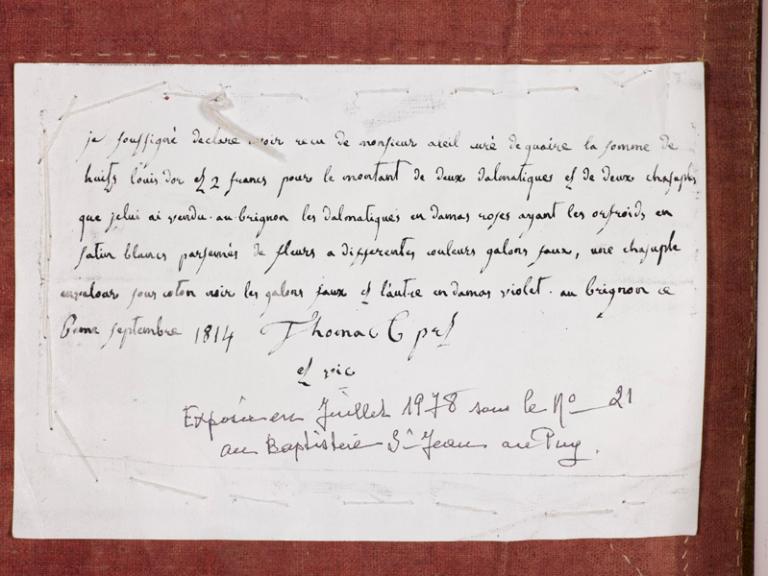 je soussigné declare avoir recu de monsieur aleil curé de quaire la somme de
huits louis dor et 2 francs pour le montant de deux dalmatiques et de deux chasubles
que jelui ai vendu. au brignon les dalmatiques en damas roses ayant les orfroids en
satin blancs parsemés de fleurs a differentes couleurs galons faux, une chasuble
envelour sous coton noir les galons faux et l'autre en damas violet. au brignon ce
6eme septembre 1814
et vic
Exposée en Juillet 1978 sous le No 21
au Baptistère St Jean au Puy.